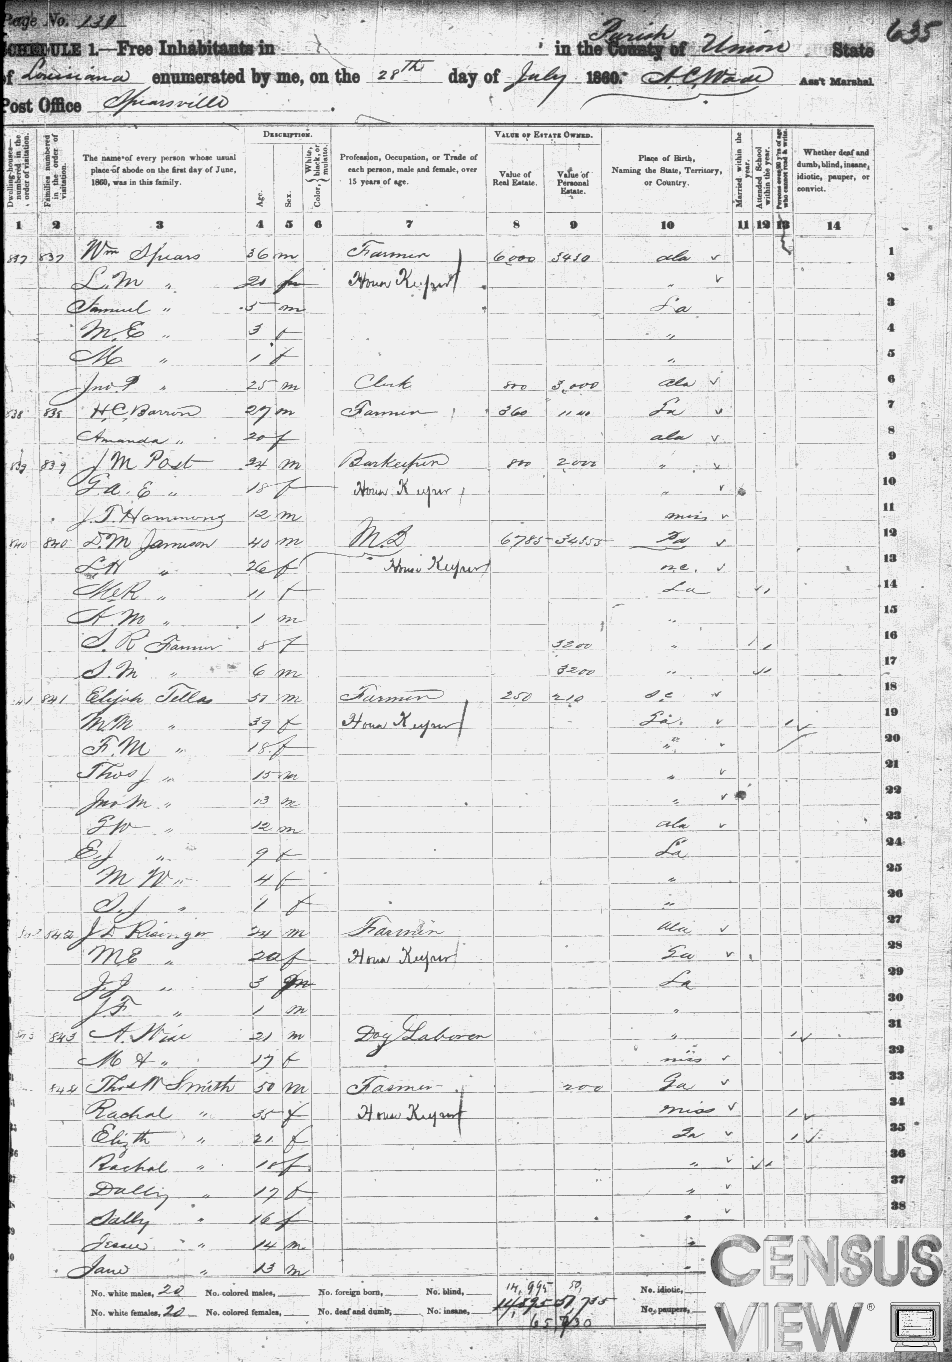 Page No. 139
635
SCHEDULE 1.—Free Inhabitants in in the County of Parish Union State
of Louisiana enumerated by me, on the 28th day of July 1860. A.C. Wade Ass't Marshal.
Post Office Spearsville
Dwelling-houses—numbered in the order of visitation.
Families numbered in the order of visitation.
The name of every person whose usual place of abode on the first day of June, 1860, was in this family.
DESCRIPTION.
Age.
Sex.
Color, { White, black, or mulatto.
Profession, Occupation, or Trade of each person, male and female, over 15 years of age.
VALUE OF ESTATE OWNED.
Value of Real Estate.
Value of Personal Estate.
Place of Birth, Naming the State, Territory, or Country.
Married within the year.
Attended School within the year.
Persons over 20 y'rs of age who cannot read & write.
Whether deaf and dumb, blind, insane, idiotic, pauper, or convict.
1 2 3 4 5 6 7 8 9 10 11 12 13 14
837 837 Wm Spears 36 m Farmer 6000 ala 1
L.M " f House Keeper " 2
Samuel " 5 m La 3
M.E " 3 f " 4
M " 1 f " 5
Jno P " 25 m Clerk 800 3,000 ala 6
838 838 H.C. Barron 27 m Farmer 360 1140 La 7
Amanda " 20 f ala 8
839 839 J M Post 24 m Barkeeper 800 2000 " 9
E " 18 f House Keeper " 10
J.T. Hammons 12 m miss 11
840 840 D.M Jameson 40 m M.D 6785 12
L H " 26 f House Keeper n.c. 13
" 11 f La 14
A.M " 1 m " 15
S.R Farmer 8 f 3200 " 16
S.M " 6 m 3200 " 17
841 841 Elijah m Farmer 250 210 s.c 18
M.M " 39 f House Keeper 19
F.M " 18 f " 20
Thos J " 15 m " 21
Jno M " 13 m " 22
" 12 m ala 23
E J " 9 f La 24
M W " 4 f " 25
" 1 f " 26
842 J D Risinger 24 m Farmer ala 27
M E " 20 f House Keeper Ga 28
J.J " 3 m La 29
J.F " 1 m " 30
843 843 A. Wise 21 m Day Laborer " 31
M A " 17 f miss 32
844 Thos W Smith 50 m Farmer 200 Ga 33
Rachal " 35 f House Keeper miss 34
Elizth " 21 f 35
Rachal " f " 36
" 17 f " 37
Sally " 16 f " 38
Jessie " 14 m "
Jane " 13 m
No. white males, 20 No. colored males, No. foreign born, No. blind, No. idiotic,
No. white females, 20 No. colored females, No. deaf and dumb, No. insane, No. paupers,
CENSUS
VIEW ®